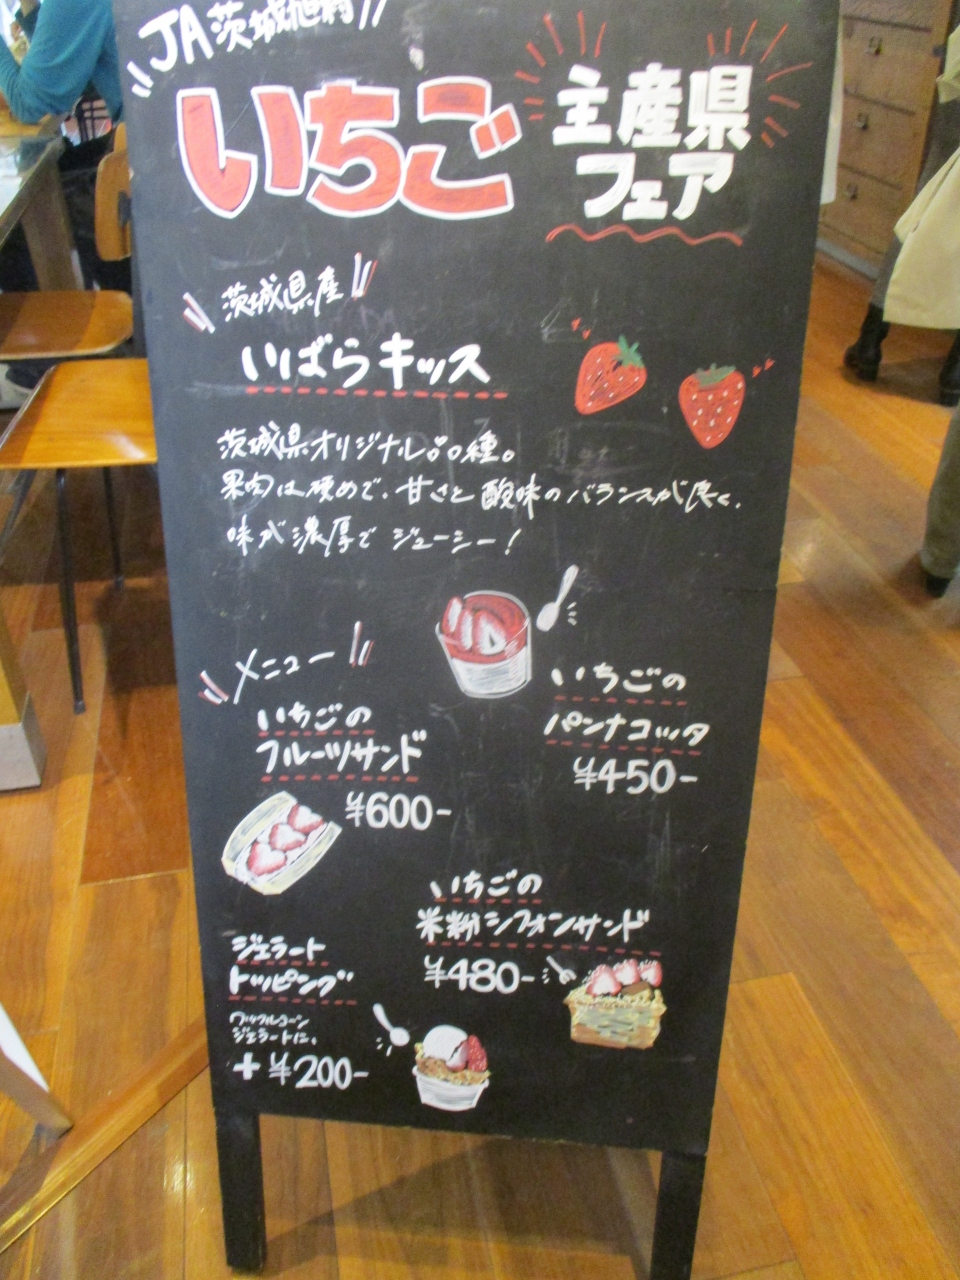 JA茨城旭村
いちご
主産県
フェア
茨城県産
いばらキッス
茨城県オリジナル品種。
果肉は硬めで、甘さと酸味のバランスが良く、
味が濃厚でジューシー!
メニュー
いちごの
フルーツサンド
¥600-
いちごの
パンナコッタ
¥450-
いちごの
米粉シフォンサンド
¥480-
ジェラート
トッピング
ワッフルコーン
ジェラートに、
+¥200-